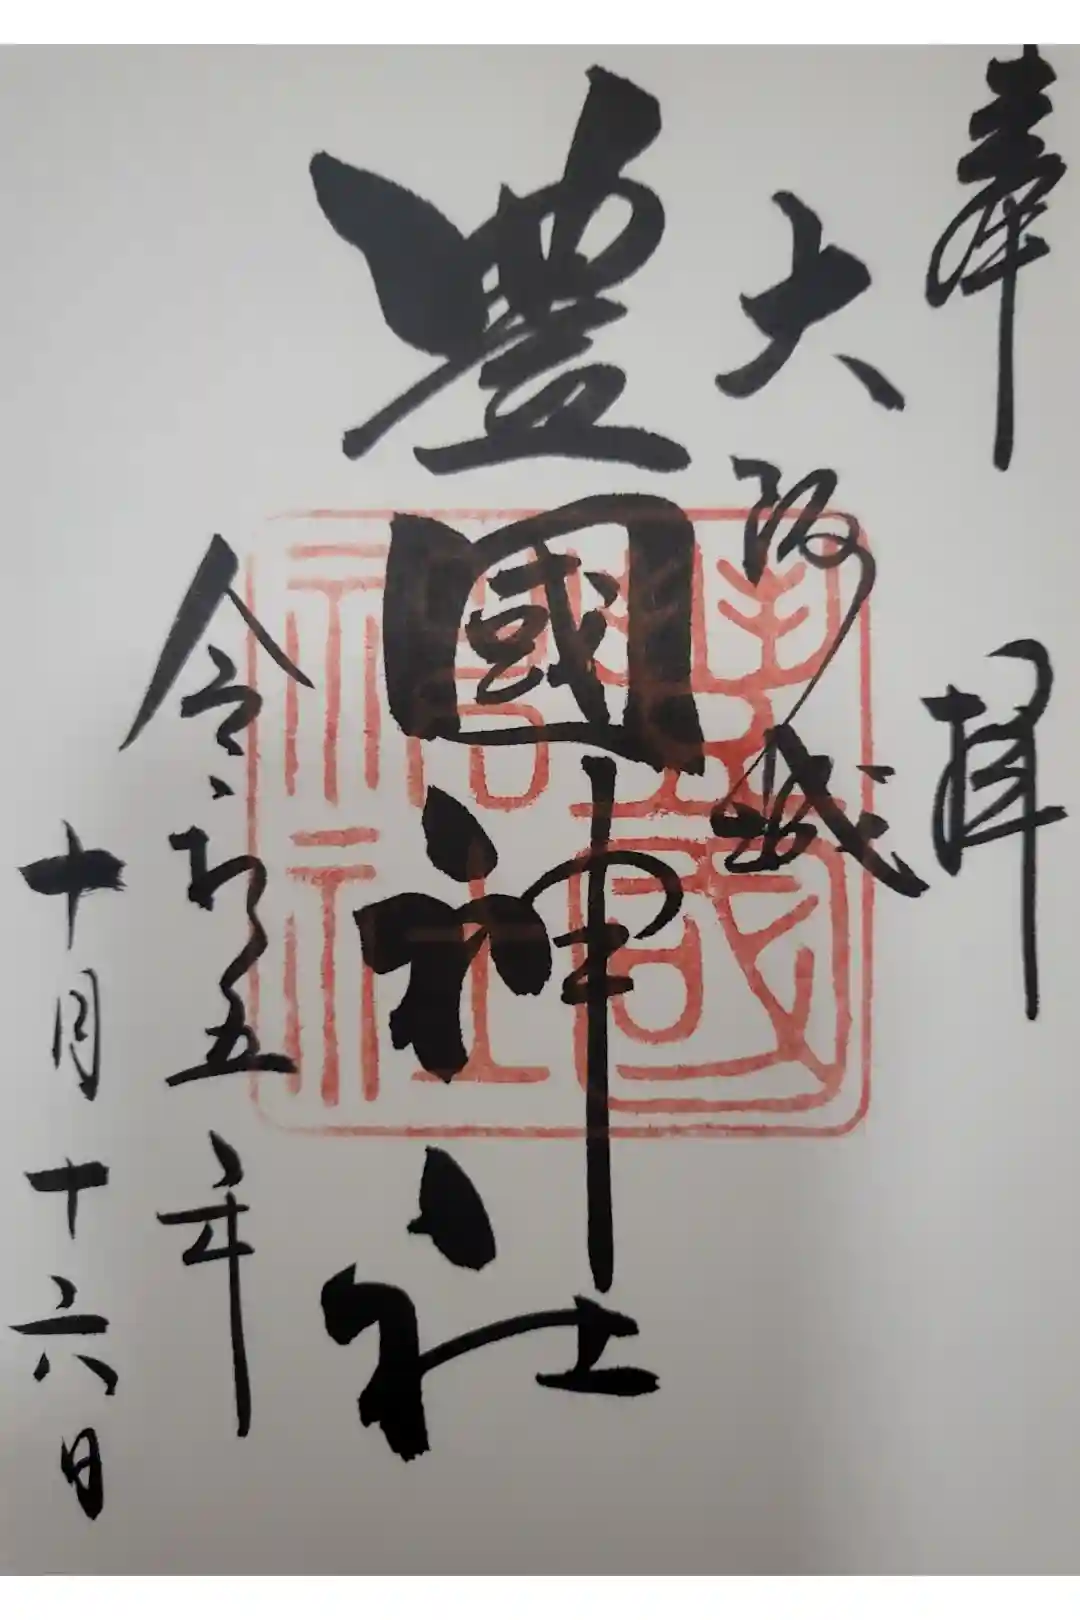 奉拝
大阪城
豊國神社
令和五年
十月十六日
豊國
神社